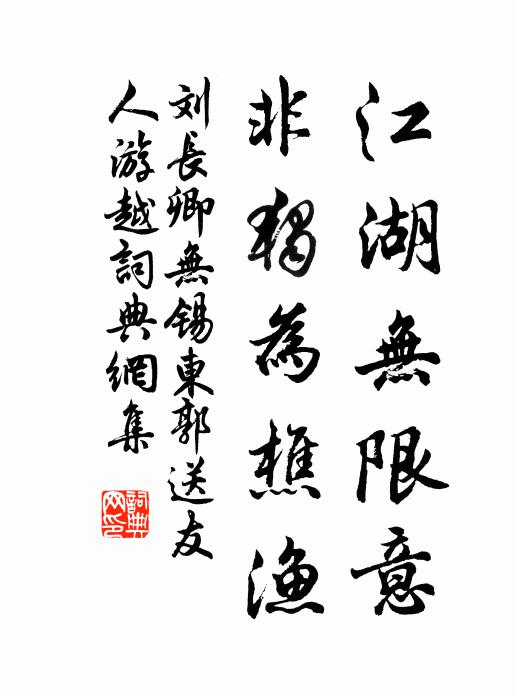 江湖無限意
非獨為樵漁
刘長卿無錫東郭送友
人游越詞典網集
詞典網印